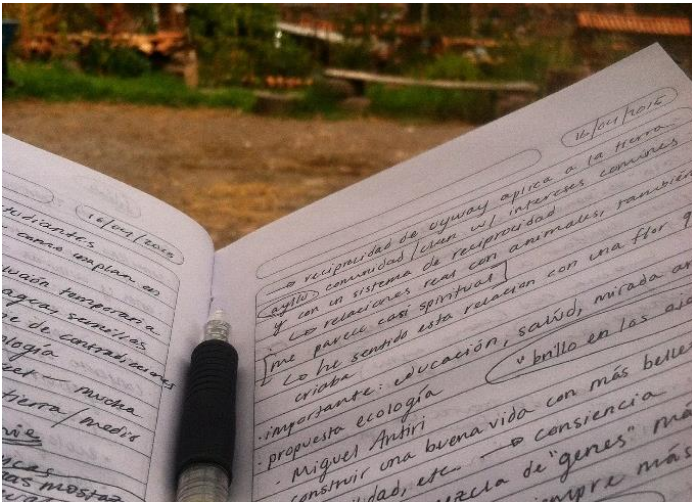 16/04/2015
estudiantes
como emplan en
temporaria
semillas
de contradicciones
mucha
tierra/medio
mostaz
16/04/2015
→ reciprocidad de uyway aplica a la tierra
ayllu comunidad/clan w/ intereses comunes
y con un sistema de reciprocidad
↳ relaciones reas con animales, también
[me parece casi spiritual]
↳ he sentido esta relación con una flor q
criaba
· importante: educación, salud, mirada a
· propuesta ecología
"brillo en los ojo
· Miguel Antiri
construir una buena vida con más belle
dad, etc. → consiencia
mezcla de "genes" ma
siempre más